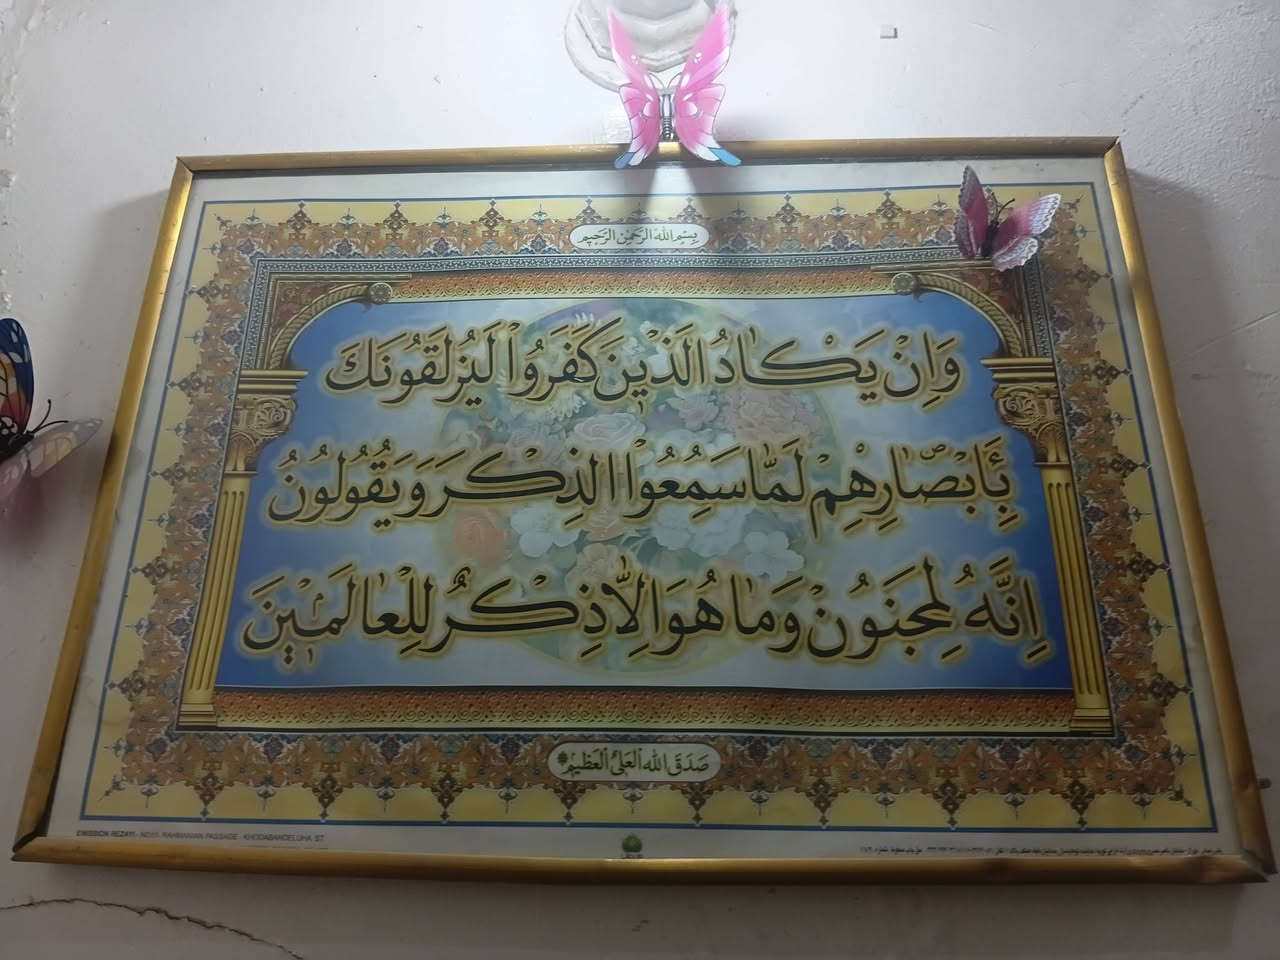 بِسْمِ اللهِ الرَّحْمٰنِ الرَّحِيمِ
وَاِنْ يَكَادُ الَّذِينَ كَفَرُوا لَيُزْلِقُونَكَ
بِاَبْصَارِهِمْ لَمَّا سَمِعُوا الذِّكْرَ وَيَقُولُونَ
اِنَّهُ لَمَجْنُونٌ وَمَا هُوَ اِلَّا ذِكْرٌ لِلْعَالَمِينَ
صَدَقَ اللهُ الْعَلِيُّ الْعَظِيمُ
EMISSION REZAYI - NO.
RAHMANIAN PASSAGE - KHODABANDELUHA ST.